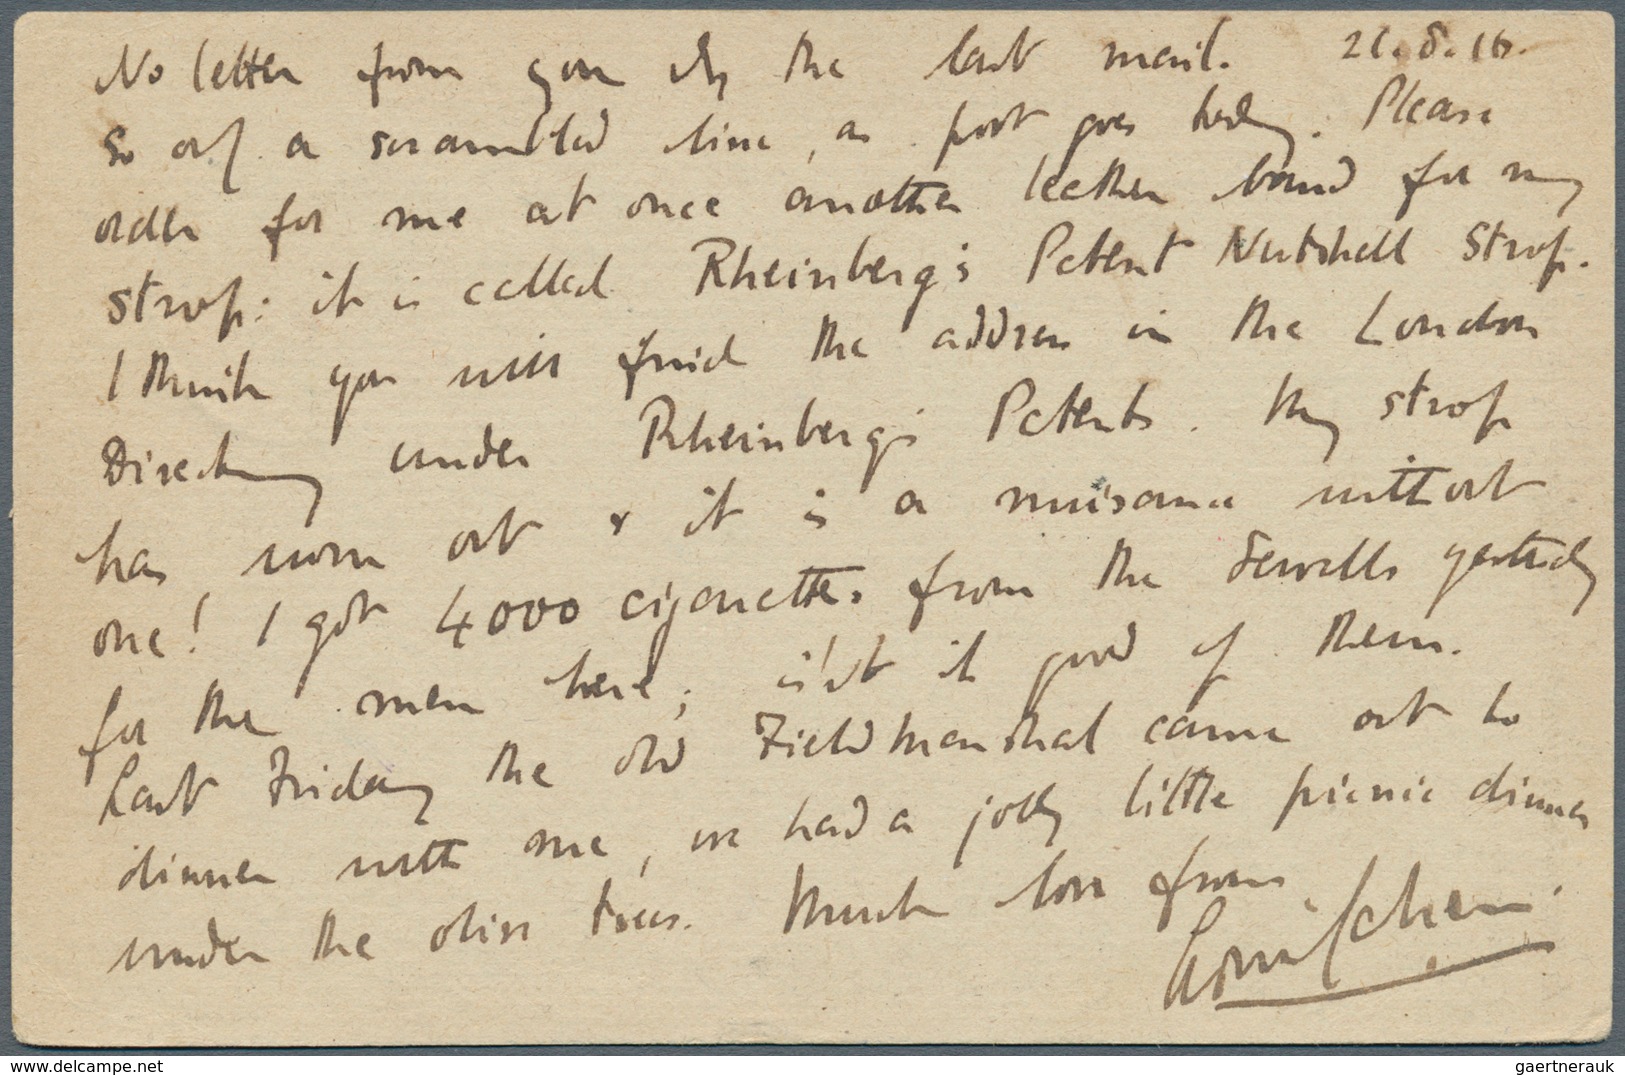 No letter from you by the last mail. 21.8.16.
So only a scrambled line, as post goes today. Please
order for me at once another leather band for my
strop: it is called Rheinberg's Patent Nutshell Strop.
I think you will find the address in the London
Directory under Rheinberg's Patents. My strop
has worn out & it is a nuisance without
one! I got 4000 cigarettes from the Sewells yesterday
for the men here; isn't it good of them.
Last Friday the old Field Marshal came out to
dinner with me, we had a jolly little picnic dinner
under the olive trees. Much love from
delcampe.net
gaertnerauk